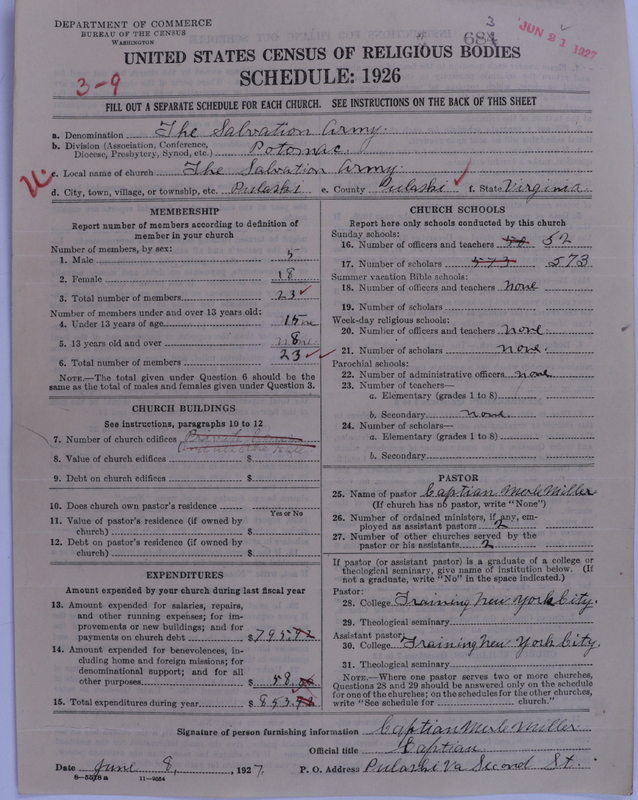 DEPARTMENT OF COMMERCE
BUREAU OF THE CENSUS
WASHINGTON
3
684
JUN 21 1927
UNITED STATES CENSUS OF RELIGIOUS BODIES
3-9
SCHEDULE: 1926
FILL OUT A SEPARATE SCHEDULE FOR EACH CHURCH. SEE INSTRUCTIONS ON THE BACK OF THIS SHEET
a. Denomination The Salvation Army.
b. Division (Association, Conference, Diocese, Presbytery, Synod, etc.) Potomac.
c. Local name of church The Salvation Army.
d. City, town, village, or township, etc. Pulaski e. County Pulaski f. State Virginia
MEMBERSHIP
Report number of members according to definition of
member in your church
Number of members, by sex:
1. Male 5
2. Female 18
3. Total number of members 23
Number of members under and over 13 years old:
4. Under 13 years of age 15
5. 13 years old and over 8
6. Total number of members 23
NOTE.—The total given under Question 6 should be
same as the total of males and females given under Question 3.
CHURCH BUILDINGS
See instructions, paragraphs 10 to 12
7. Number of church edifices
8. Value of church edifices $
9. Debt on church edifices $
10. Does church own pastor's residence
Yes or No
11. Value of pastor's residence (if owned by
church) $
12. Debt on pastor's residence (if owned by
church) $
EXPENDITURES
Amount expended by your church during last fiscal year
13. Amount expended for salaries, repairs,
and other running expenses; for im-
provements or new buildings; and for
payments on church debt $795
14. Amount expended for benevolences, in-
cluding home and foreign missions; for
denominational support; and for all
other purposes $58.
15. Total expenditures during year $853.
CHURCH SCHOOLS
Report here only schools conducted by this church
Sunday schools:
16. Number of officers and teachers 52
17. Number of scholars 573 573
Summer vacation Bible schools:
18. Number of officers and teachers none
19. Number of scholars
Week-day religious schools:
20. Number of officers and teachers none.
21. Number of scholars none.
Parochial schools:
22. Number of administrative officers none
23. Number of teachers—
a. Elementary (grades 1 to 8)
b. Secondary none.
24. Number of scholars—
a. Elementary (grades 1 to 8)
b. Secondary
PASTOR
25. Name of pastor Captian Merle Miller
(If church has no pastor, write "None")
26. Number of ordained ministers, if any, em-
ployed as assistant pastors 2
27. Number of other churches served by the
pastor or his assistants 2
If pastor (or assistant pastor) is a graduate of a college or
theological seminary, give name of institution below. (If
not a graduate, write "No" in the space indicated.)
Pastor:
28. College Training New York City.
29. Theological seminary
Assistant pastor:
30. College Training New York City.
31. Theological seminary
NOTE.—Where one pastor serves two or more churches,
Questions 28 and 29 should be answered only on the schedule
for one of the churches; on the schedules for the other churches,
write "See schedule for church."
Signature of person furnishing information Captian Merle Miller
Official title Captian
Date June 8, 1927. P. O. Address Pulaski Va Second St.
8-5518a 11-9554